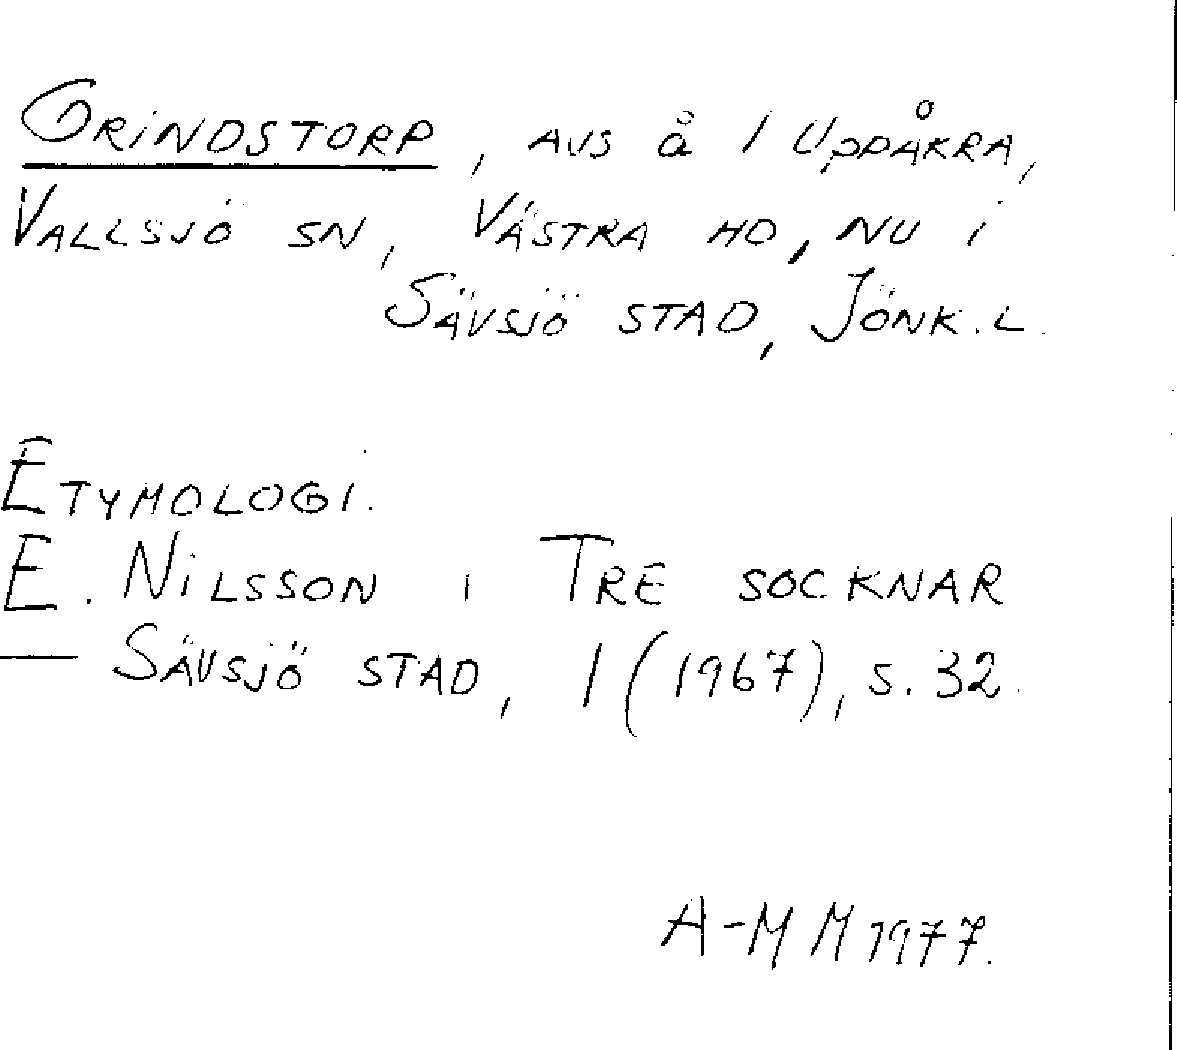 GRINDSTORP, AVS Å 1 UPPÅKRA,
VALLSJÖ SN, VÄSTRA HD, NU I
SÄVSJÖ STAD, JÖNK. L.
ETYMOLOGI.
E. NILSSON I TRE SOCKNAR
— SÄVSJÖ STAD, 1 (1967), S. 32.
A-M M 1977.